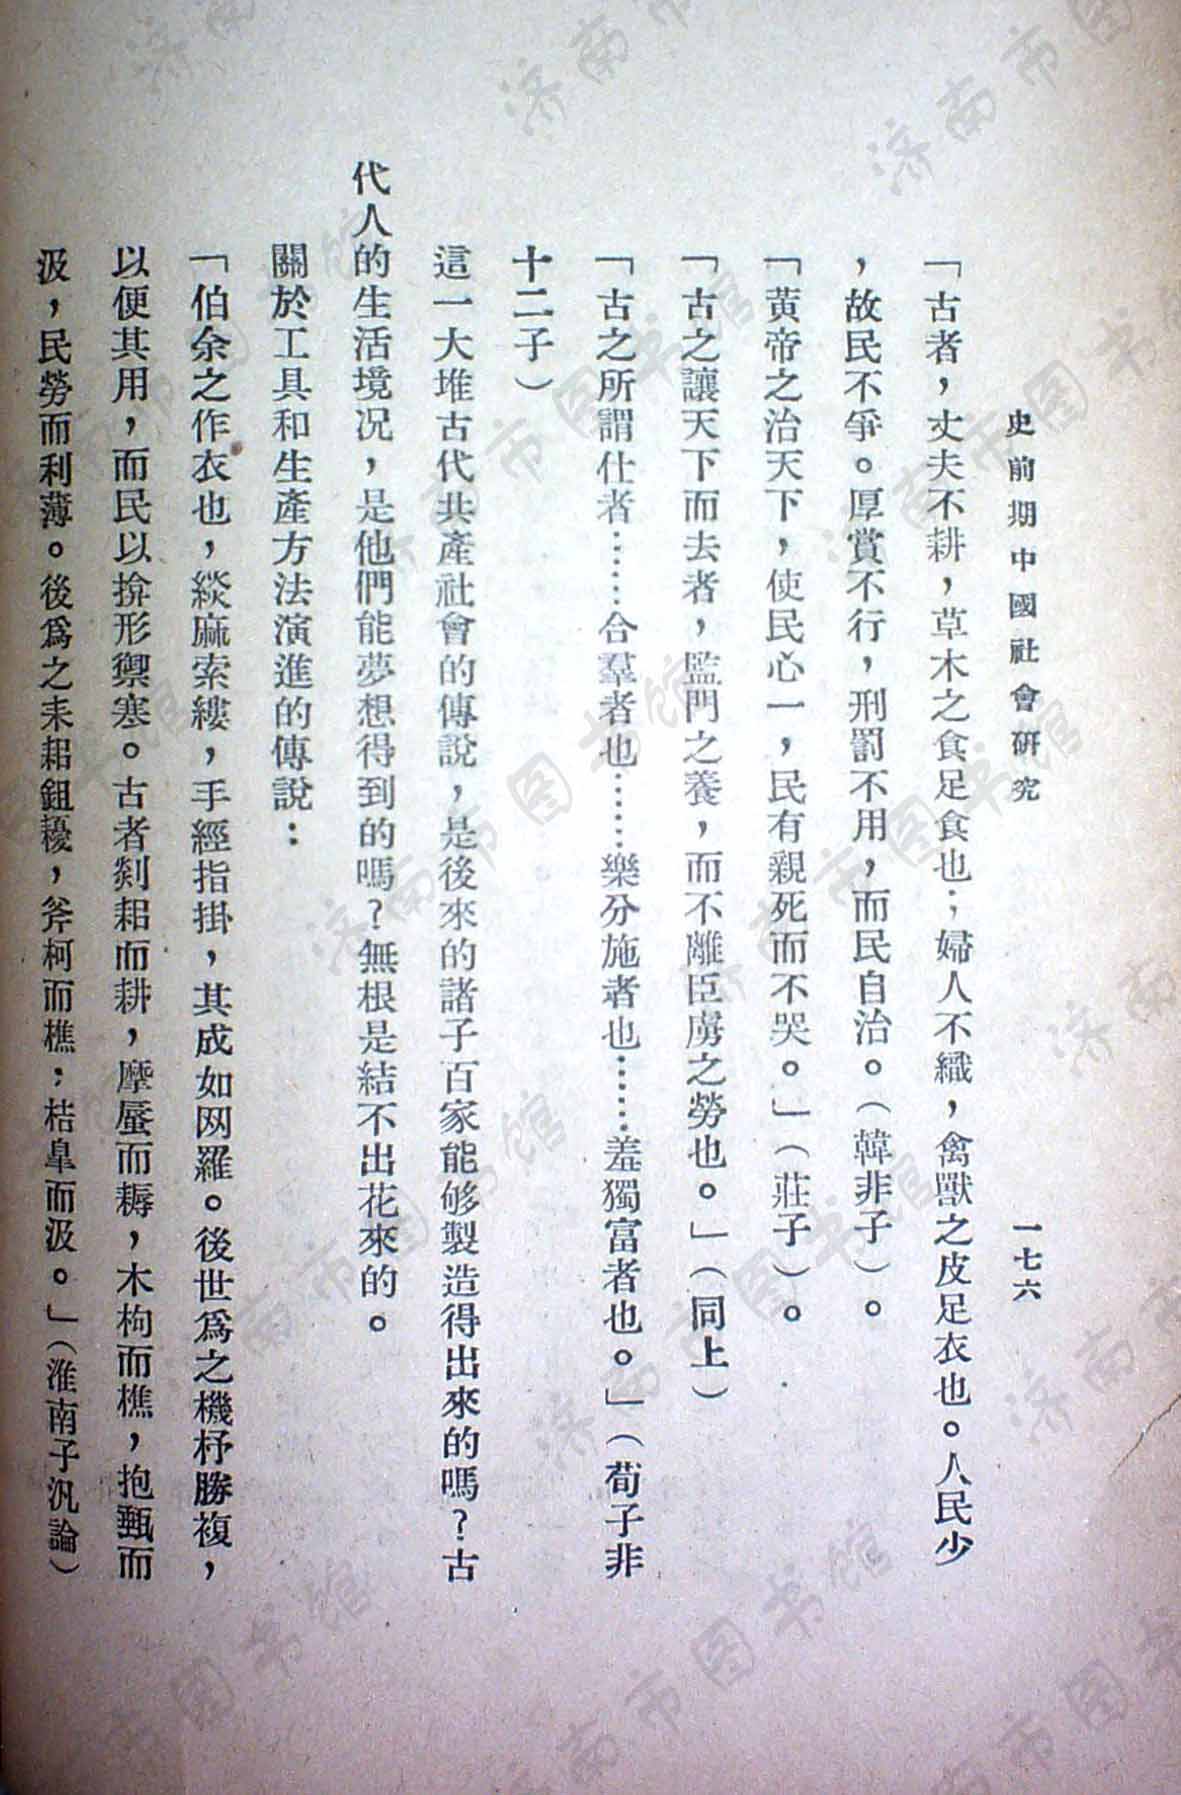 史前期中國社會研究
一七六
「古者，丈夫不耕，草木之食足食也；婦人不織，禽獸之皮足衣也。人民少
，故民不爭。厚賞不行，刑罰不用，而民自治。（韓非子）。
「黄帝之治天下，使民心一，民有親死而不哭。」（莊子）。
「古之讓天下而去者，監門之養，而不離臣虜之勞也。」（同上）
「古之所謂仕者……合羣者也……樂分施者也……羞獨富者也。」（荀子非
十二子）
這一大堆古代共產社會的傳說，是後來的諸子百家能够製造得出來的嗎？古
代人的生活境况，是他們能夢想得到的嗎？無根是結不出花來的。
關於工具和生產方法演進的傳說：
「伯余之作衣也，緂麻索縷，手經指掛，其成如网羅。後世爲之機杼勝複，
以便其用，而民以揜形禦寒。古者剡耜而耕，摩蜃而耨，木枸而樵，抱甀而
汲，民勞而利薄。後爲之耒耜鉏耰，斧柯而樵，桔臯而汲。」（淮南子汎論）
济南市图书馆